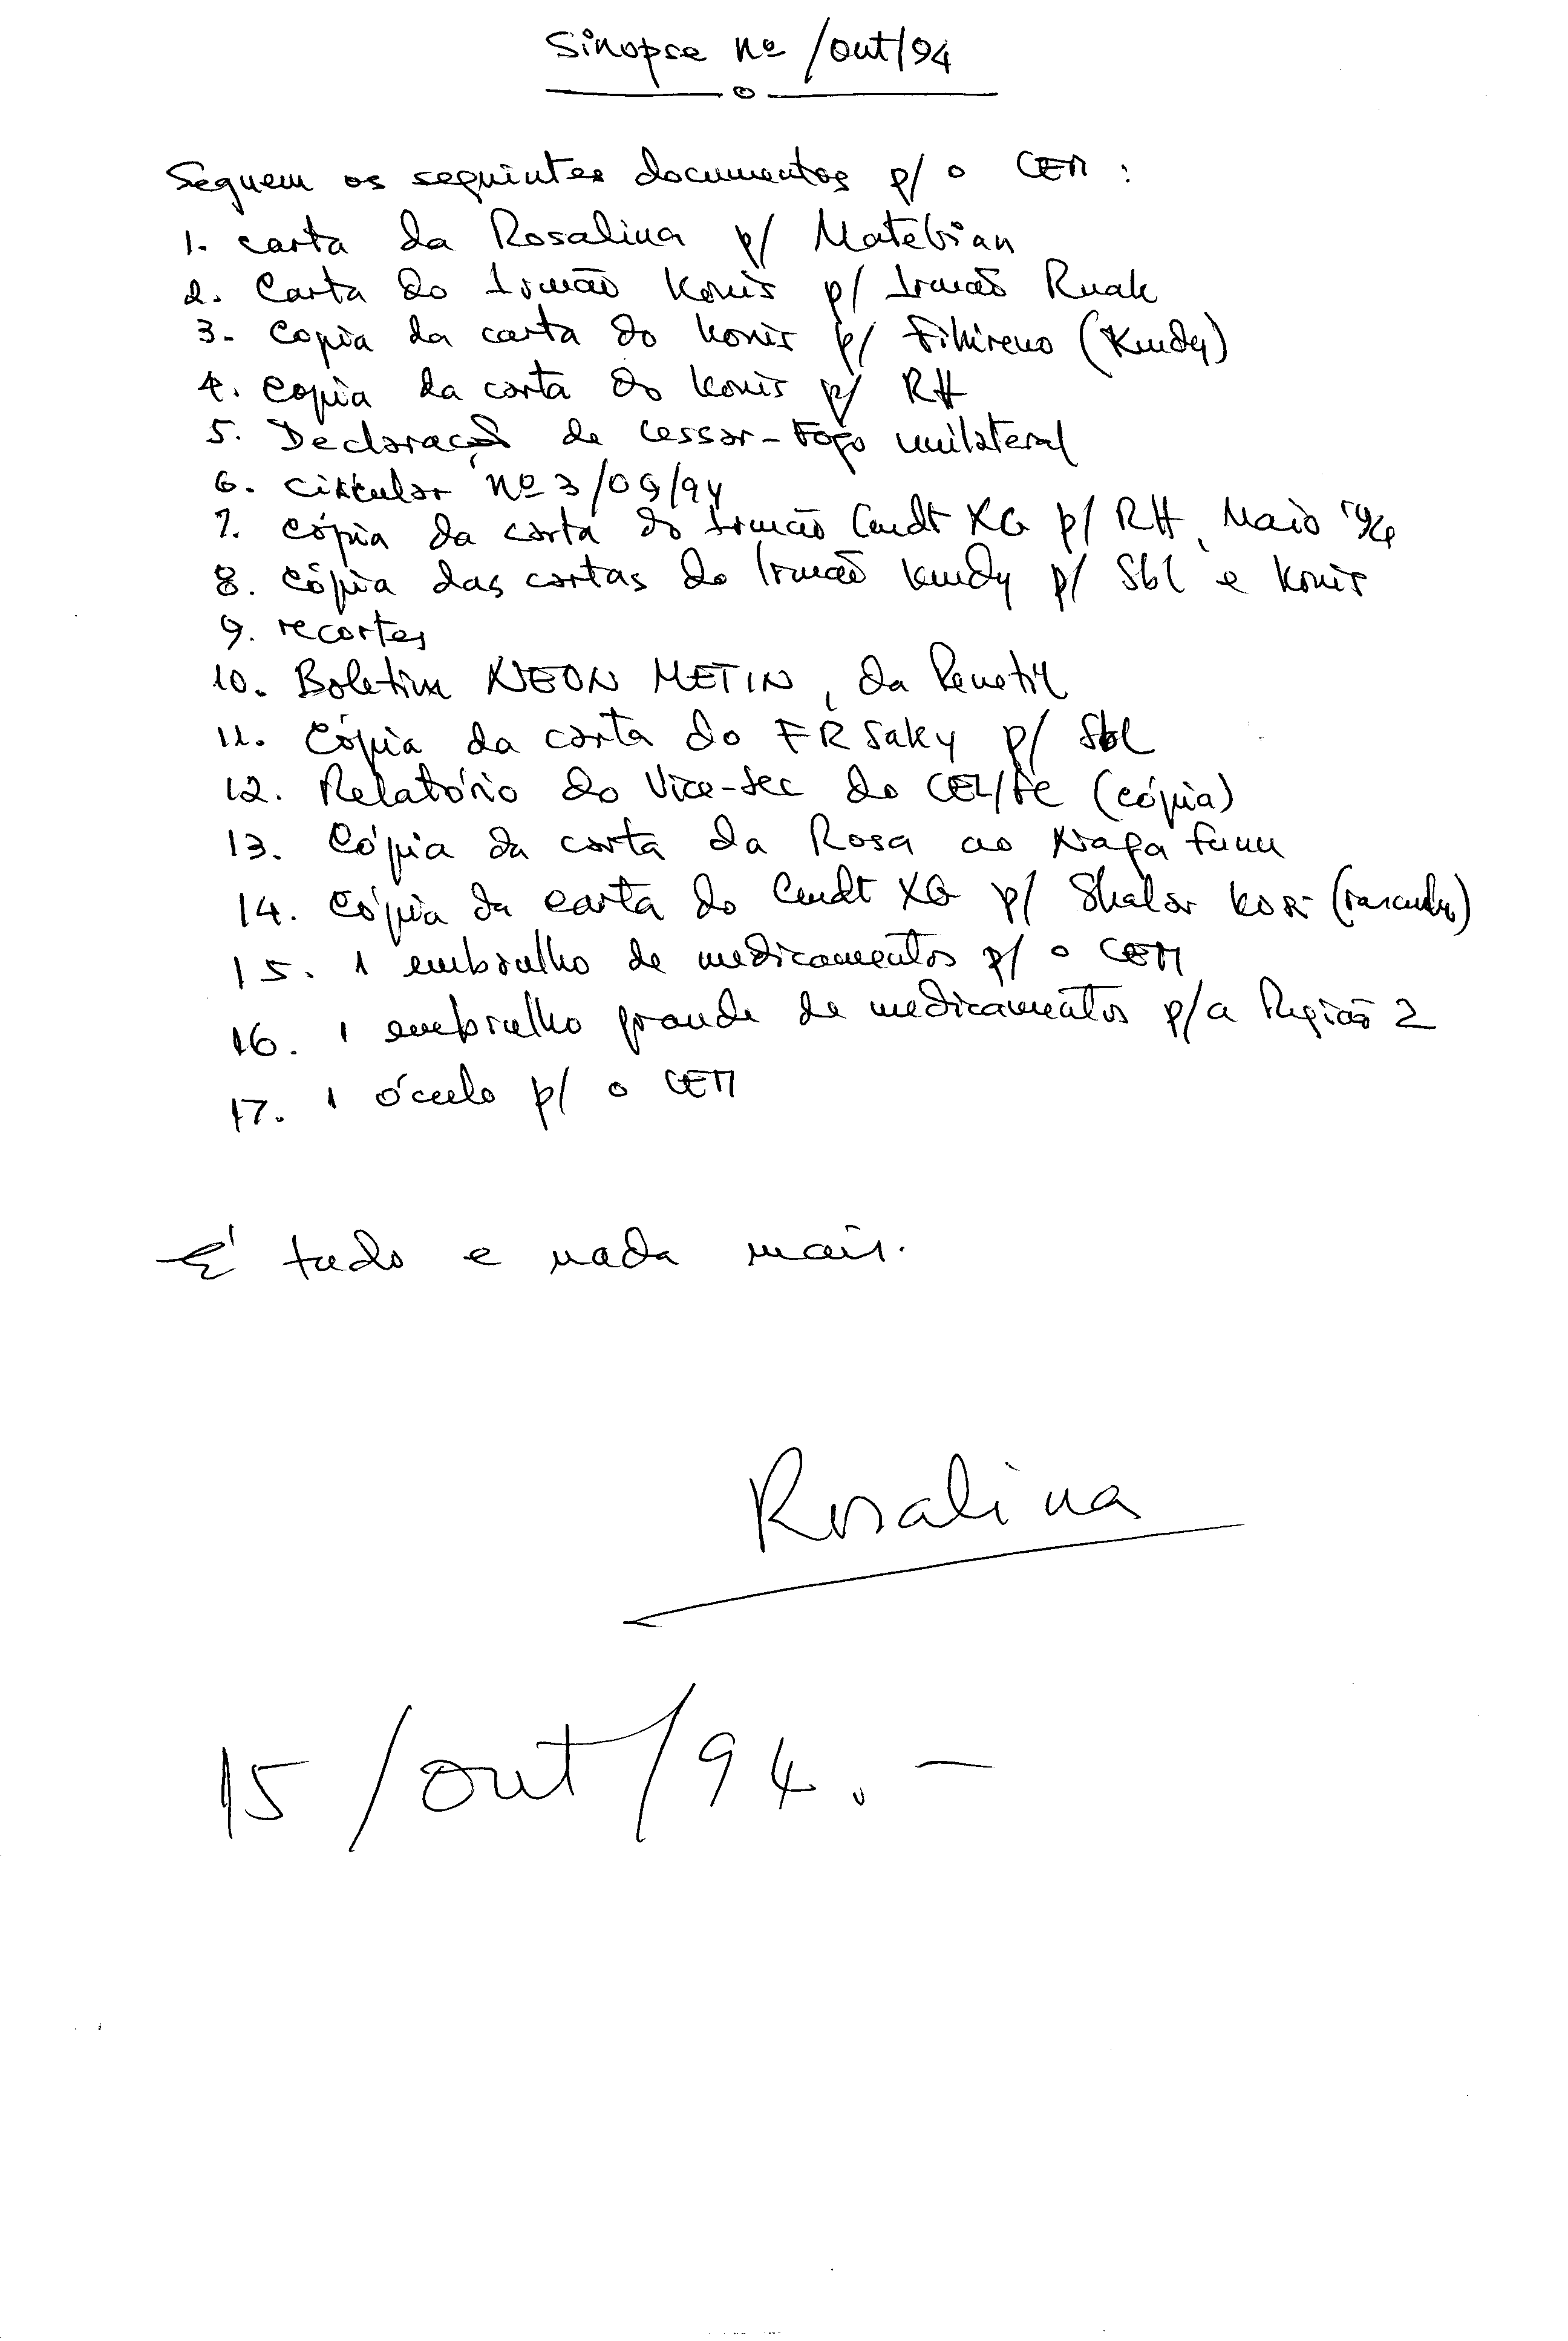 Sinopse nº /out/94
Seguem os seguintes documentos p/ o CEM :
1. carta da Rosalina p/ Matebian
2. Carta do Irmão Konis p/ Irmão Ruak
3. Copia da carta do Konis p/ Filireno (Kmdy)
4. Copia da carta do Konis p/ RH
5. Declaração de cessar-Fogo unilateral
6. circular nº 3/09/94
7. cópia da carta do Irmão Cmdt XG p/ RH, Maio '94
8. cópia das cartas do Irmão Kmdy p/ Sbl e Konis
9. recortes
10. Boletim NEON METIN, da Renetil
11. Cópia da carta do FR Saky p/ Sbl
12. Relatório do Vice-Sec do CEL/FC (cópia)
13. Cópia da carta da Rosa ao Naga funu
14. Cópia da carta do Cmdt XG p/ Skalar
15. 1 embrulho de medicamentos p/ o CEM
16. 1 embrulho grande de medicamentos p/a Região 2
17. 1 óculo p/ o CEM
É tudo e nada mais.
Rosalina
15/out/94. -